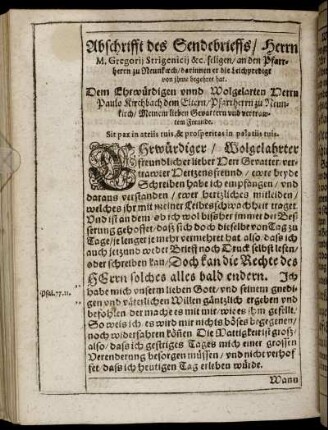 Abschrifft des Sendebrieffs/ Herrn
M. Gregorij Strigenicij &c. seligen/ an den Pfarr-
herrn zu Neunkirch/ darinnen er die Leichpredigt
von ihme begehret hat.
Dem Ehrwürdigen vnnd Wolgelarten Herrn
Paulo Kirchbach dem Eltern/ Pfarrherrn zu Neun-
kirch/ Meinem lieben Gevattern vnd vertraw-
tem Freunde.
Sit pax in atriis tuis, & prosperitas in palatiis tuis.
EHrwürdiger/ Wolgelahrter
freundlicher lieber Herr Gevatter/ ver-
trawter Hertzensfreund/ ewre beyde
Schreiben habe ich empfangen/ vnd
daraus verstanden/ ewer hertzliches mitleiden/
welches ihr mit meiner Leibesschwachheit traget.
Vnd ist an dem/ ob ich wol bißher immer der Bes-
serung gehoffet/ daß sich doch dieselbe von Tag zu
Tage/ je lenger je mehr vermehret hat also/ daß ich
auch jetzund weder Brieff noch Druck selbst lesen/
oder schreiben kan/ Doch kan die Rechte des
HErrn solches alles bald endern. Ich
Psal. 77. 11.
habe mich vnserm lieben Gott/ vnd seinem gnedi-
gen vnd väterlichen Willen gäntzlich ergeben vnd
befohlen/ der mache es mit mir/ wie es ihm gefellt.
So weis ich/ es wird mir nichts böses begegenen/
noch widerfahren können. Die Mattigkeit ist groß/
also/ daß ich gestriges Tages mich einer grossen
Verenderung besorgen müssen/ vnd nicht verhof-
fet/ daß ich heutigen Tag erleben würde.
Wann